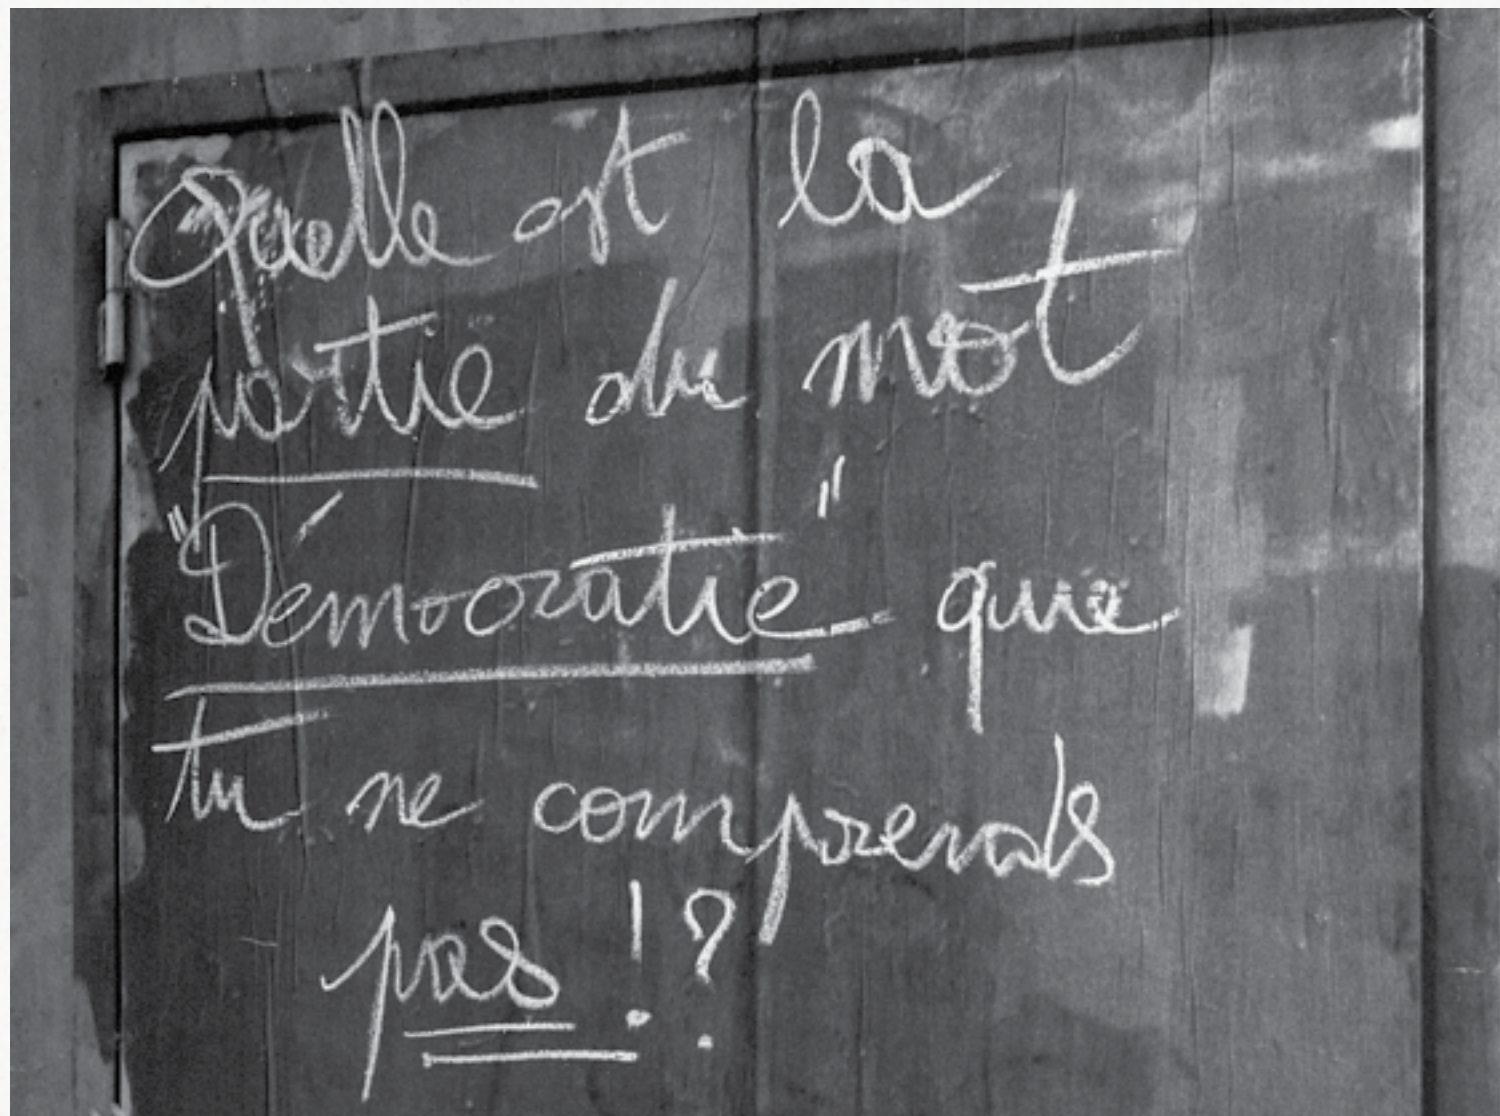 Quelle est la
partie du mot
"Démocratie" que
tu ne comprends
pas !?